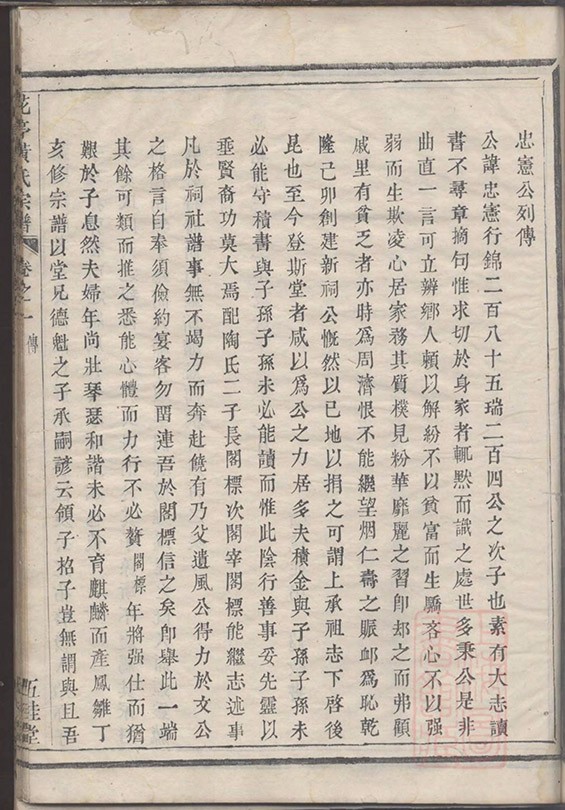 忠憲公列傳
公諱忠憲行錦二百八十五瑞二百四公之次子也素有大志讀
書不尋章摘句惟求切於身家者輒默而識之處世多秉公是非
曲直一言可立辨鄉人賴以解紛不以貧富而生驕吝心不以强
弱而生欺凌心居家務其質樸見紛華靡麗之習卽却之而弗顧
戚里有貧乏者亦時爲周濟恨不能繼望烟仁壽之賑卹爲恥乾
隆己卯創建新祠公慨然以已地以捐之可謂上承祖志下啓後
昆也至今登斯堂者咸以爲公之力居多夫積金與子孫子孫未
必能守積書與子孫子孫未必能讀而惟此陰行善事妥先靈以
垂賢裔功莫大焉配陶氏二子長閣標次閣宰閣標能繼志述事
凡於祠社譜事無不竭力而奔赴饒有乃父遺風公得力於文公
之格言自奉須儉約宴客勿畱連吾於閣標信之矣卽舉此一端
其餘可類而推之悉能心體而力行不必贅閣標年將强仕而猶
艱於子息然夫婦年尚壯琴瑟和諧未必不育麒麟而產鳳雛丁
亥修宗譜以堂兄德魁之子承嗣諺云領子招子豈無謂與且吾
花亭黃氏宗譜 卷之一 傳
五桂堂